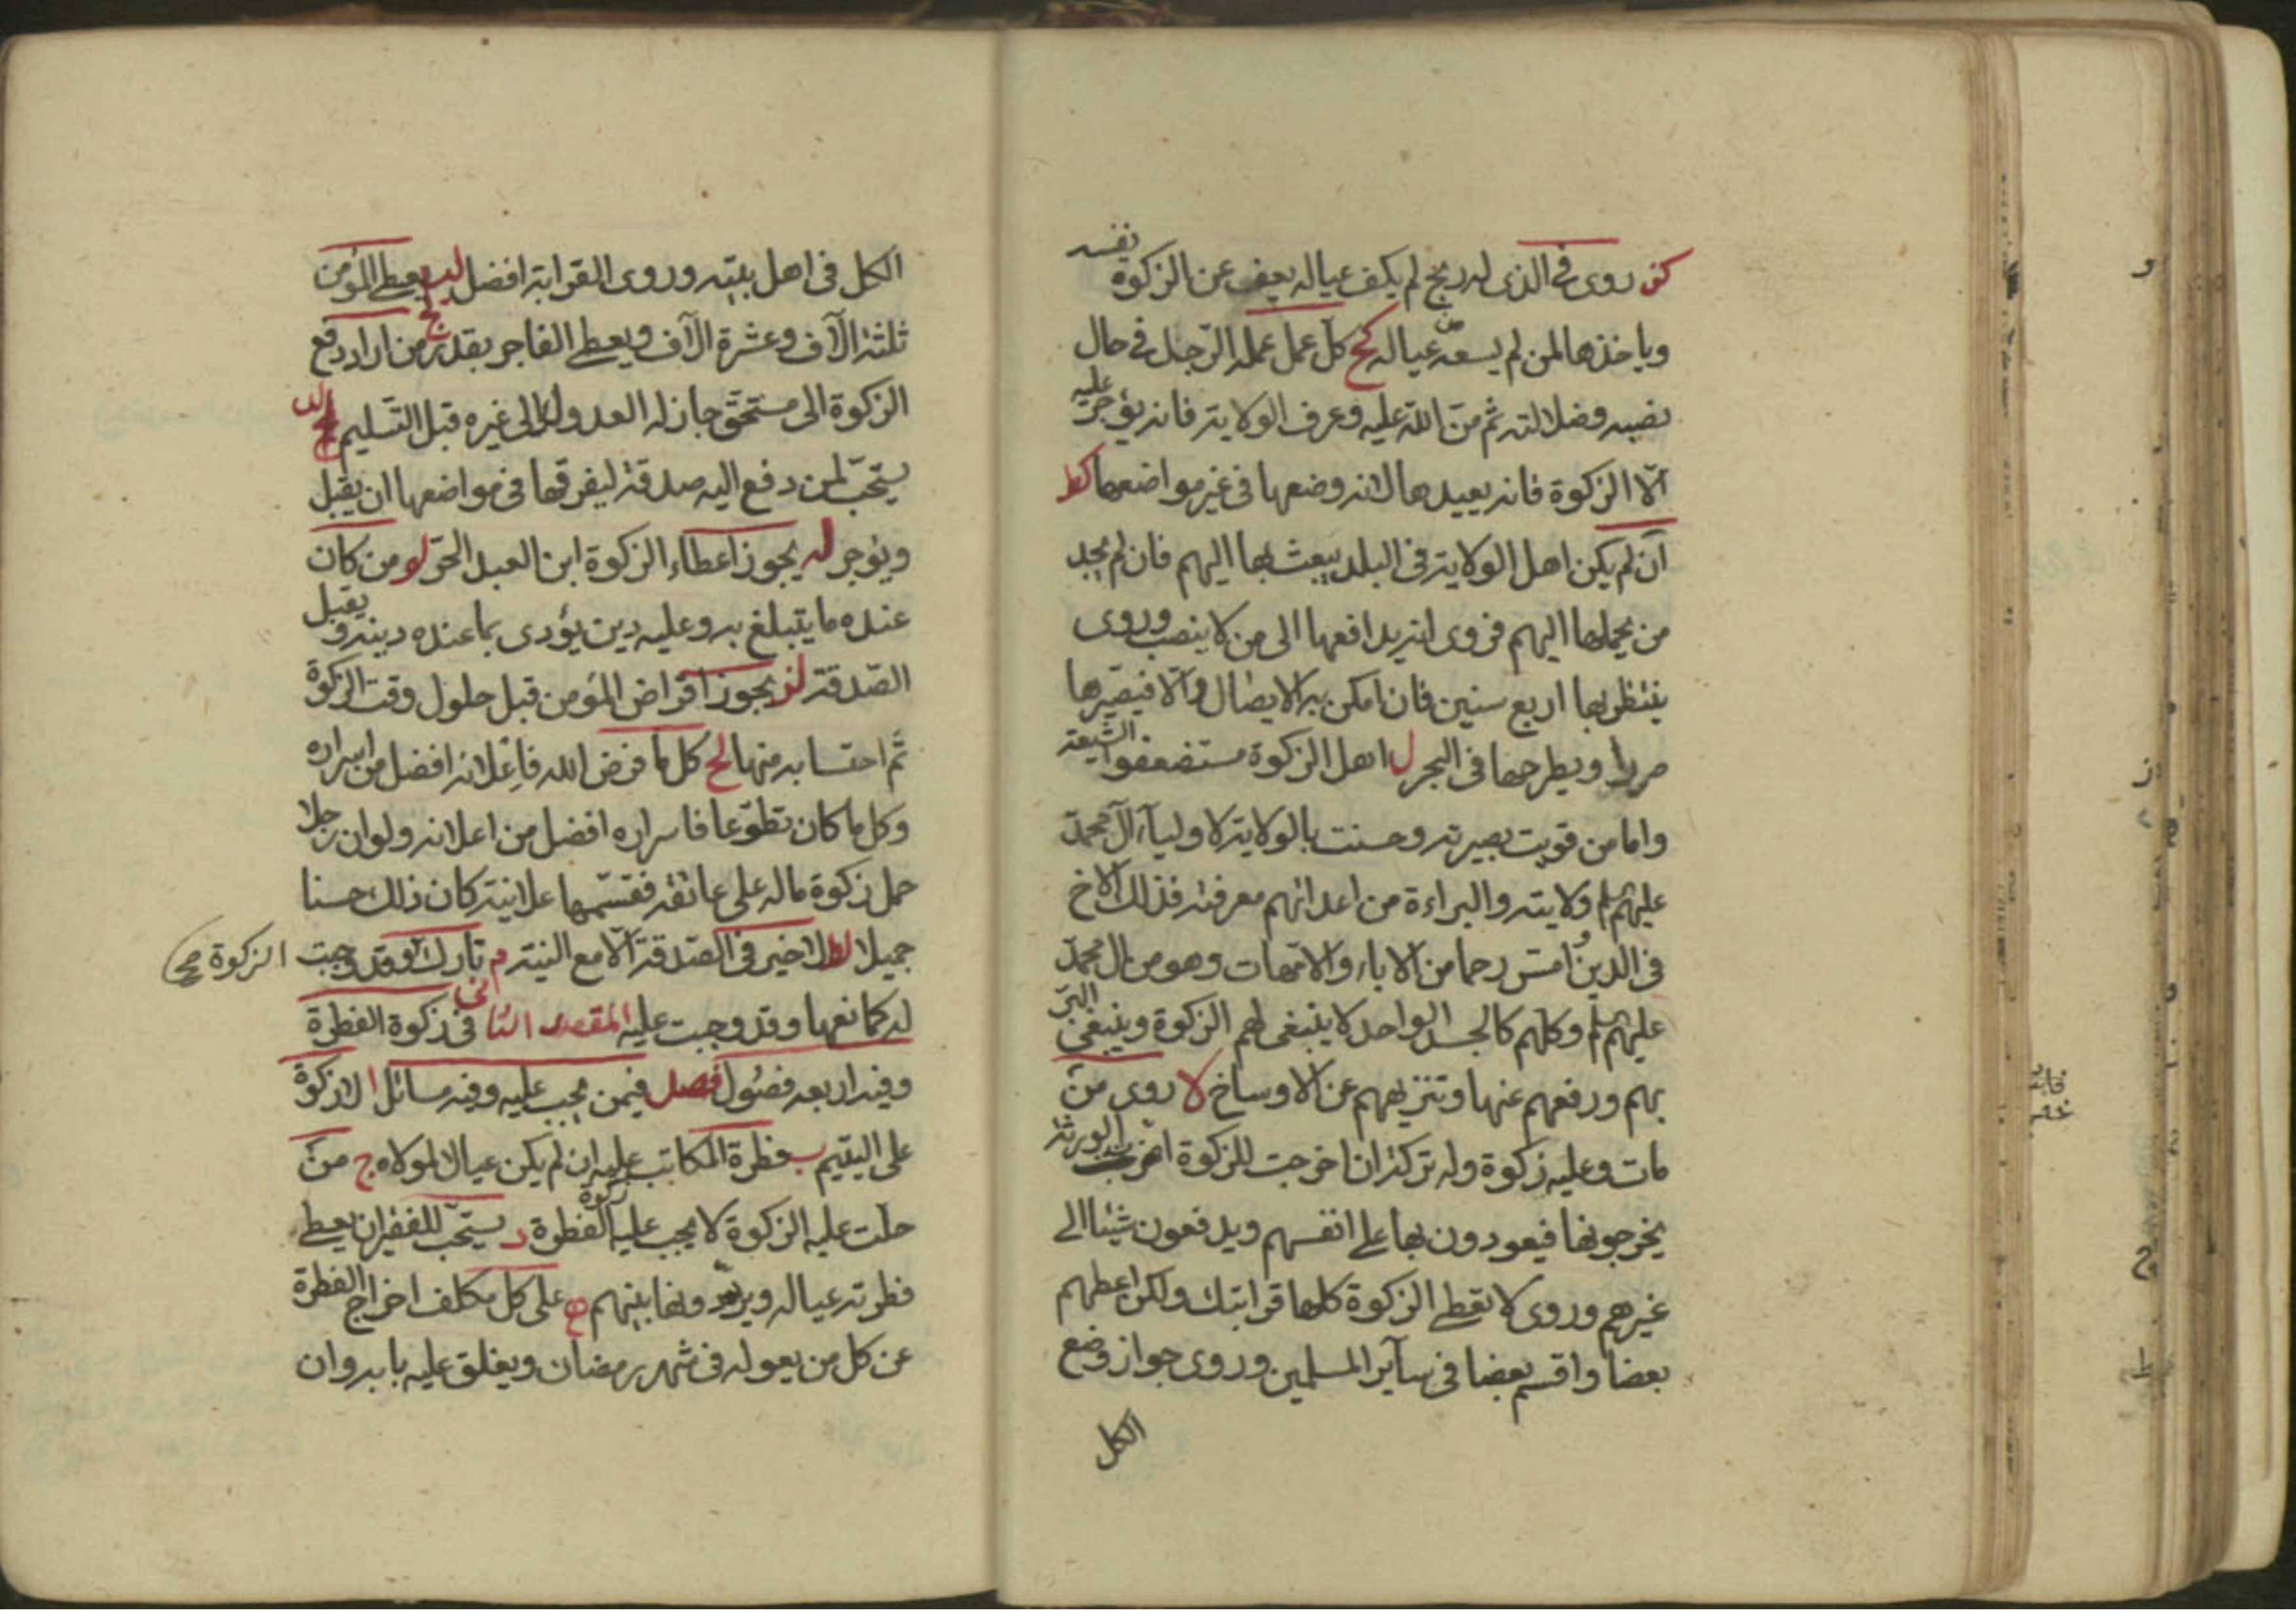 كز روى في الذى له ربح لم يكف عياله يعف عن الزكوة نفسه
وياخذها لمن لم يسعه من عياله كح كل عمل عمله الرّجل في حال
نصبه وضلالته ثم منّ اللّه عليه وعرف الولاية فانه يؤجر عليه
الّا الزكوة فانه يعيدها لانه وضعها في غير مواضعها كط
ان لم يكن اهل الولاية فى البلد يبعث بها اليهم فان لم يجد
من يحملها اليهم فروى انه يدافعها الى من لا ينصب وروى
ينتظر بها اربع سنين فان امكن به الايصال والّا فيصيّرها
صررا ويطرحها فى البحر ل اهل الزكوة مستضعفوا الشيعة
واما من قويت بصيرته وحسنت بالولاية لاوليآء آل محمّد
عليهم السلم ولايته والبراءة من اعدائهم معرفته فذلك الاخ
فى الدين امسّ رحما من الاباء والامّهات وهو من ال محمّد
عليهم السلم وكلهم كالجسد الواحد لا ينبغى لهم الزكوة وينبغى البرّ
بهم ورفعهم عنها وتنزيههم عن الاوساخ لا روى من
مات وعليه زكوة وله تركة ان اخرجت للزكوة اضرّت بالورثة
يخرجونها فيعودون بها على انفسهم ويدفعون شيئا الى
غيرهم وروى لا تعطى الزكوة كلها قرابتك ولكن اعطهم
بعضا واقسم بعضا فى سآير المسلمين وروى جواز وضع
الكل
الكل فى اهل بيته وروى القرابة افضل لب يعطى المؤمن
ثلثة الآف وعشرة الآف ويعطى الفاجر بقدر لج من اراد دفع
الزكوة الى مستحقّ جاز له العدول الى غيره قبل التسليم لد
يستحبّ لمن دفع اليه صدقة ليفرقها فى مواضعها ان يقبل
ويؤجر له يجوز اعطاء الزكوة ابن العبد الحرّ لو من كان
عنده ما يتبلغ به وعليه دين يؤدى بما عنده دينه ويقبل
الصّدقة لز يجوز اقراض المؤمن قبل حلول وقت الزكوة
ثم احتسابه منها لح كل ما فرض الله فاعلانه افضل من اسراره
وكل ما كان تطوّعا فاسراره افضل من اعلانه ولو ان رجلا
حمل زكوة ماله على عاتقه فقسّمها علانية كان ذلك حسنا
جميلا لط لا خير فى الصّدقة الّا مع النية م تارك الزكوة صح وقد وجبت
له كمانعها وقد وجبت عليه المقصد الثانى فى زكوة الفطرة
وفيه اربعة فصول فصل فيمن يجب عليه وفيه مسائل ا لا زكوة
على اليتيم ب فطرة المكاتب عليه ان لم يكن عيالا لمولاه ج من
حلّت عليه الزكوة لا يجب عليه زكوة الفطرة د يستحبّ للفقير ان يعطى
فطرته عياله ويردّونها بينهم ه على كل مكلف اخراج الفطرة
عن كل من يعوله فى شهر رمضان ويغلق عليه بابه وان